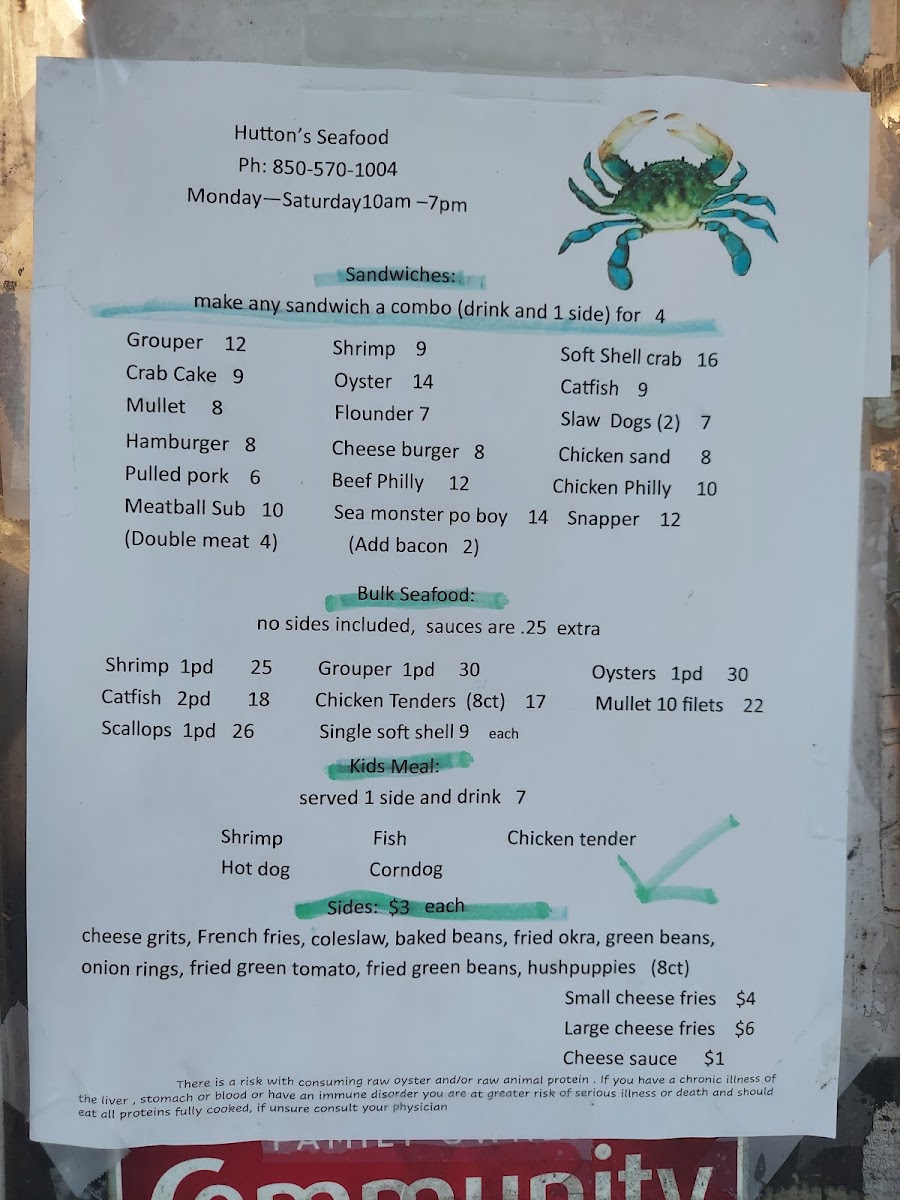 Hutton's Seafood
Ph: 850-570-1004
Monday—Saturday10am –7pm
Sandwiches:
make any sandwich a combo (drink and 1 side) for 4
Grouper 12 Shrimp 9 Soft Shell crab 16
Crab Cake 9 Oyster 14 Catfish 9
Mullet 8 Flounder 7 Slaw Dogs (2) 7
Hamburger 8 Cheese burger 8 Chicken sand 8
Pulled pork 6 Beef Philly 12 Chicken Philly 10
Meatball Sub 10 Sea monster po boy 14 Snapper 12
(Double meat 4) (Add bacon 2)
Bulk Seafood:
no sides included, sauces are .25 extra
Shrimp 1pd 25 Grouper 1pd 30 Oysters 1pd 30
Catfish 2pd 18 Chicken Tenders (8ct) 17 Mullet 10 filets 22
Scallops 1pd 26 Single soft shell 9 each
Kids Meal:
served 1 side and drink 7
Shrimp Fish Chicken tender
Hot dog Corndog
Sides: $3 each
cheese grits, French fries, coleslaw, baked beans, fried okra, green beans,
onion rings, fried green tomato, fried green beans, hushpuppies (8ct)
Small cheese fries $4
Large cheese fries $6
Cheese sauce $1
There is a risk with consuming raw oyster and/or raw animal protein . If you have a chronic illness of
the liver , stomach or blood or have an immune disorder you are at greater risk of serious illness or death and should
eat all proteins fully cooked, if unsure consult your physician
FAMILY OWNED
Community